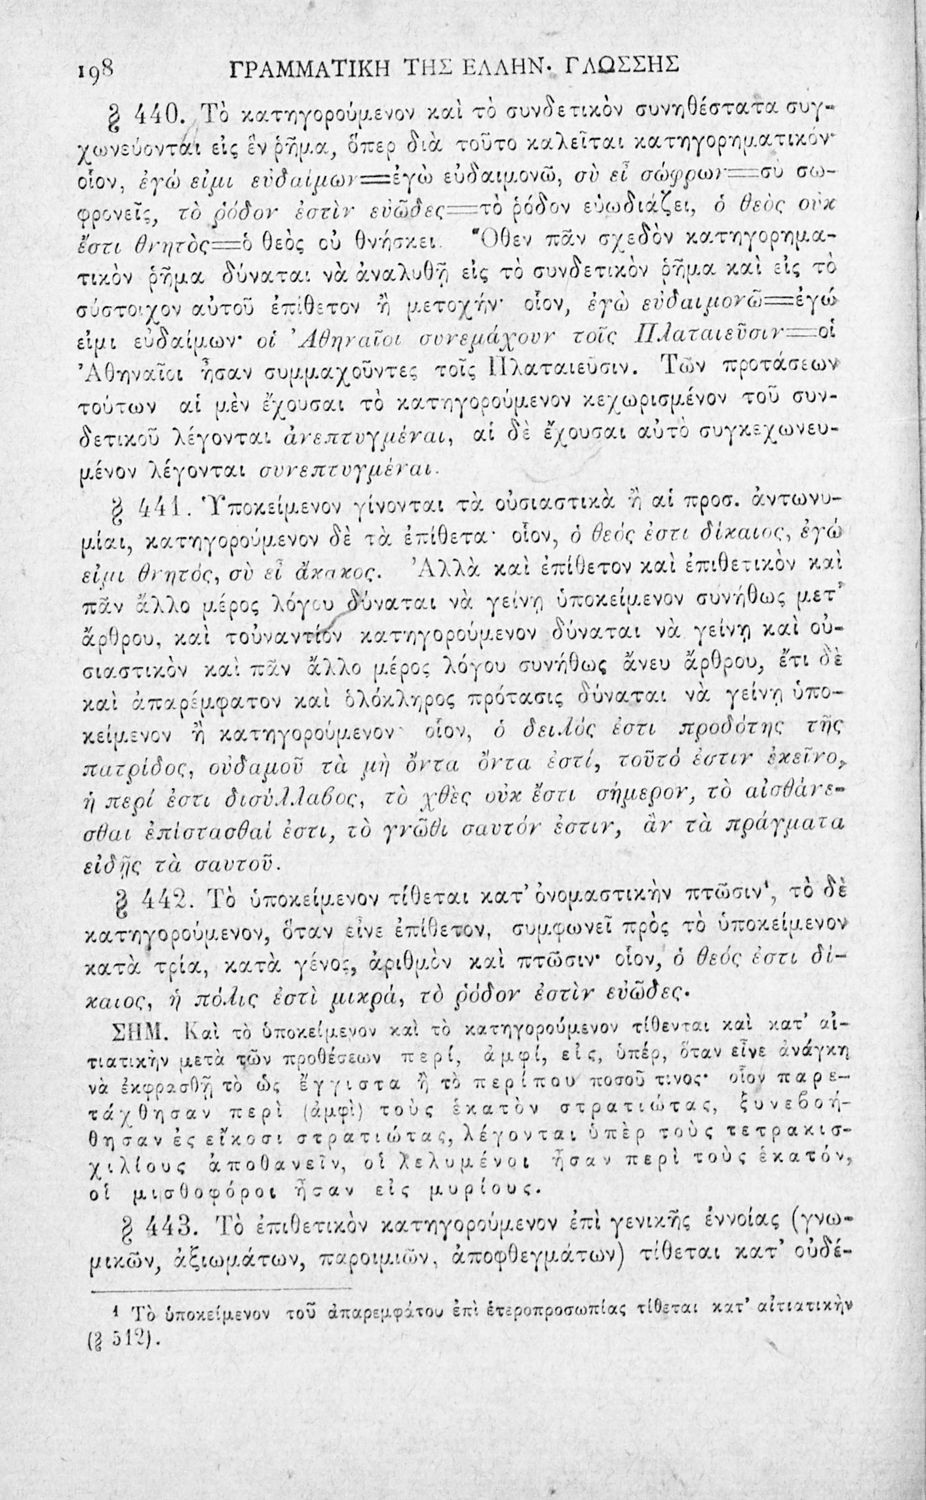 198 ΓΡΑΜΜΑΤΙΚΗ ΤΗΣ ΕΛΛΗΝ. ΓΛΩΣΣΗΣ
§ 440. Τὸ κατηγορούμενον καὶ τὸ συνδετικὸν συνηθέστατα συγ-
χωνεύονται εἰς ἓν ῥῆμα, ὅπερ διὰ τοῦτο καλεῖται κατηγορηματικόν·
οἷον, ἐγώ εἰμι εὐδαίμων=ἐγὼ εὐδαιμονῶ, σὺ εἶ σώφρων=συ σω-
φρονεῖς, τὸ ῥόδον ἐστὶν εὐῶδες=τὸ ῥόδον εὐωδιάζει, ὁ θεὸς οὐκ
ἔστι θνητὸς=ὁ θεὸς οὐ θνήσκει. Ὅθεν πᾶν σχεδὸν κατηγορημα-
τικὸν ῥῆμα δύναται νὰ ἀναλυθῇ εἰς τὸ συνδετικὸν ῥῆμα καὶ εἰς τὸ
σύστοιχον αὐτοῦ ἐπίθετον ἢ μετοχήν· οἷον, ἐγὼ εὐδαιμονῶ=ἐγώ
εἰμι εὐδαίμων· οἱ Ἀθηναῖοι συνεμάχουν τοῖς Πλαταιεῦσιν=οἱ
Ἀθηναῖοι ἦσαν συμμαχοῦντες τοῖς Πλαταιεῦσιν. Τῶν προτάσεων
τούτων αἱ μὲν ἔχουσαι τὸ κατηγορούμενον κεχωρισμένον τοῦ συν-
δετικοῦ λέγονται ἀνεπτυγμέναι, αἱ δὲ ἔχουσαι αὐτὸ συγκεχωνευ-
μένον λέγονται συνεπτυγμέναι.
§ 441. Ὑποκείμενον γίνονται τὰ οὐσιαστικὰ ἢ αἱ προσ. ἀντωνυ-
μίαι, κατηγορούμενον δὲ τὰ ἐπίθετα· οἷον, ὁ θεός ἐστι δίκαιος, ἐγώ
εἰμι θνητός, σὺ εἶ ἄκακος. Ἀλλὰ καὶ ἐπίθετον καὶ ἐπιθετικὸν καὶ
πᾶν ἄλλο μέρος λόγου δύναται νὰ γείνῃ ὑποκείμενον συνήθως μετ’
ἄρθρου, καὶ τοὐναντίον κατηγορούμενον δύναται νὰ γείνῃ καὶ οὐ-
σιαστικὸν καὶ πᾶν ἄλλο μέρος λόγου συνήθως ἄνευ ἄρθρου, ἔτι δὲ
καὶ ἀπαρέμφατον καὶ ὁλόκληρος πρότασις δύναται νὰ γείνῃ ὑπο-
κείμενον ἢ κατηγορούμενον· οἷον, ὁ δειλός ἐστι προδότης τῆς
πατρίδος, οὐδαμοῦ τὰ μὴ ὄντα ὄντα ἐστί, τοῦτό ἐστιν ἐκεῖνο,
ἡ περί ἐστι δισύλλαβος, τὸ χθὲς οὐκ ἔστι σήμερον, τὸ αἰσθάνε-
σθαι ἐπίστασθαί ἐστι, τὸ γνῶθι σαυτόν ἐστιν, ἂν τὰ πράγματα
εἰδῇς τὰ σαυτοῦ.
§ 442. Τὸ ὑποκείμενον τίθεται κατ’ ὀνομαστικὴν πτῶσιν¹, τὸ δὲ
κατηγορούμενον, ὅταν εἶνε ἐπίθετον, συμφωνεῖ πρὸς τὸ ὑποκείμενον
κατὰ τρία, κατὰ γένος, ἀριθμὸν καὶ πτῶσιν· οἷον, ὁ θεός ἐστι δί-
καιος, ἡ πόλις ἐστὶ μικρά, τὸ ῥόδον ἐστὶν εὐῶδες.
ΣΗΜ. Καὶ τὸ ὑποκείμενον καὶ τὸ κατηγορούμενον τίθενται καὶ κατ’ αἰ-
τιατικὴν μετὰ τῶν προθέσεων περί, ἀμφί, εἰς, ὑπέρ, ὅταν εἶνε ἀνάγκη
νὰ ἐκφρασθῇ τὸ ὡς ἔγγιστα ἢ τὸ περίπου ποσοῦ τινος· οἷον παρε-
τάχθησαν περὶ (ἀμφὶ) τοὺς ἑκατὸν στρατιώτας, ξυνεβοή-
θησαν ἐς εἴκοσι στρατιώτας, λέγονται ὑπὲρ τοὺς τετρακισ-
χιλίους ἀποθανεῖν, οἱ λελυμένοι ἦσαν περὶ τοὺς ἑκατόν,
οἱ μισθοφόροι ἦσαν εἰς μυρίους.
§ 443. Τὸ ἐπιθετικὸν κατηγορούμενον ἐπὶ γενικῆς ἐννοίας (γνω-
μικῶν, ἀξιωμάτων, παροιμιῶν, ἀποφθεγμάτων) τίθεται κατ’ οὐδέ-
¹ Τὸ ὑποκείμενον τοῦ ἀπαρεμφάτου ἐπὶ ἑτεροπροσωπίας τίθεται κατ’ αἰτιατικὴν
(§ 512).